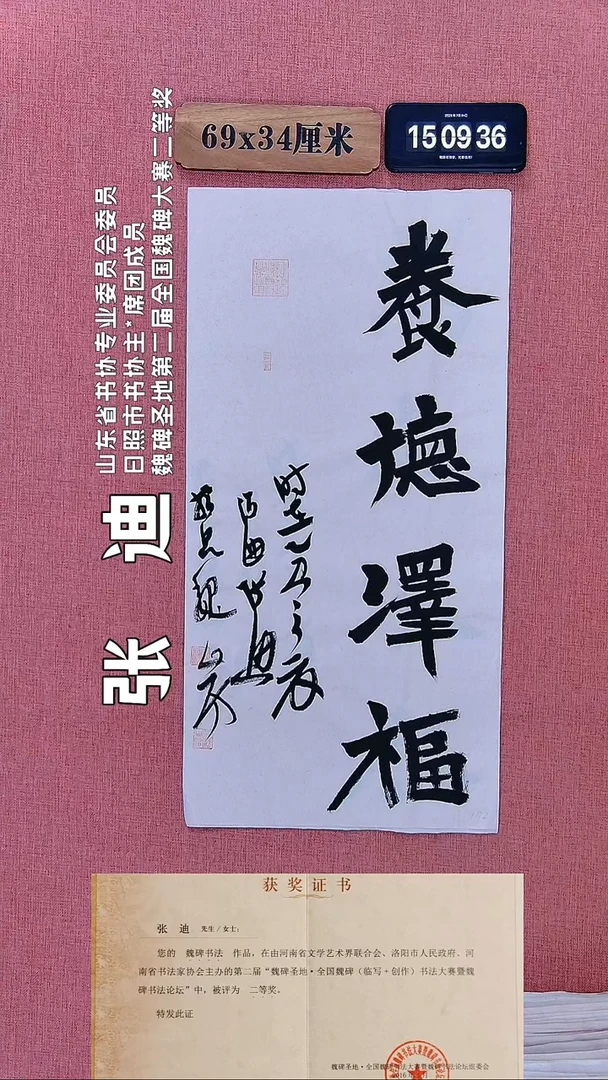 69x34厘米
15 09 36
养德泽福
山东省书协专业委员会委员
日照市书协主*席团成员
魏碑圣地第二届全国魏碑大赛二等奖
张 迪
获奖证书
张 迪 先生/女士:
您的 魏碑书法 作品,在由河南省文学艺术界联合会、洛阳市人民政府、河
南省书法家协会主办的第二届“魏碑圣地·全国魏碑(临写+创作)书法大赛暨魏
碑书法论坛”中,被评为 二等奖。
特发此证
魏碑圣地·全国魏碑书法大赛暨魏碑书法论坛组委会